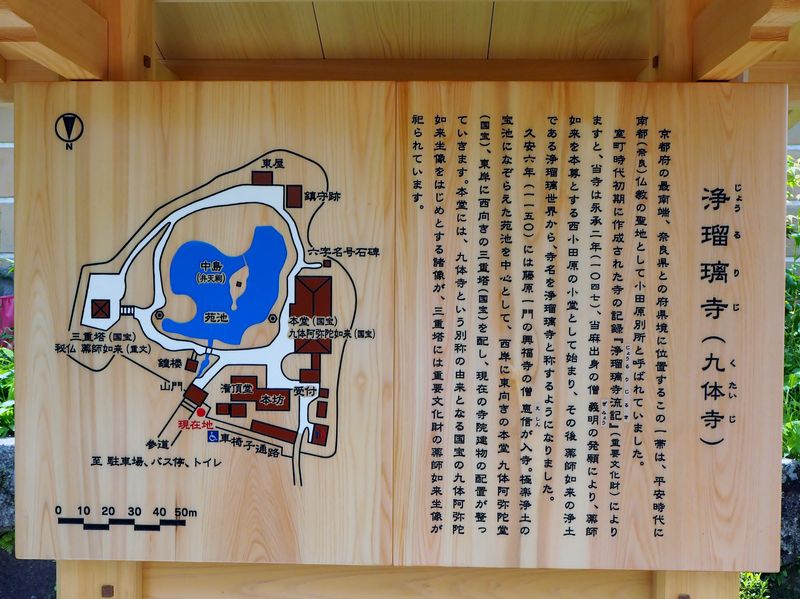 浄瑠璃寺（九体寺）
じょうるりじ
くたいじ
京都府の最南端、奈良県との府県境に位置するこの一帯は、平安時代に
南都（奈良）仏教の聖地として小田原別所と呼ばれていました。
室町時代初期に作成された寺の記録『浄瑠璃寺流記』（重要文化財）により
じょうるりじるき
ますと、当寺は永承二年（一〇四七）、当麻出身の僧 義明の発願により、薬師
ぎみょう
如来を本尊とする西小田原の小堂として始まり、その後 薬師如来の浄土
である浄瑠璃世界から、寺名を浄瑠璃寺と称するようになりました。
久安六年（一一五〇）には藤原一門の興福寺の僧 恵信が入寺。極楽浄土の
えしん
宝池になぞらえた苑池を中心として、西岸に東向きの本堂 九体阿弥陀堂
（国宝）、東岸に西向きの三重塔（国宝）を配し、現在の寺院建物の配置が整っ
ていきます。本堂には、九体寺という別称の由来となる国宝の九体阿弥陀
如来坐像をはじめとする諸像が、三重塔には重要文化財の薬師如来坐像が
祀られています。
N
東屋
鎮守跡
六字名号石碑
中島
（弁天祠）
苑池
本堂（国宝）
九体阿弥陀如来（国宝）
三重塔（国宝）
秘仏 薬師如来（重文）
鐘楼
山門
潅頂堂
本坊
受付
現在地
車椅子通路
参道
至 駐車場、バス停、トイレ
0 10 20 30 40 50m